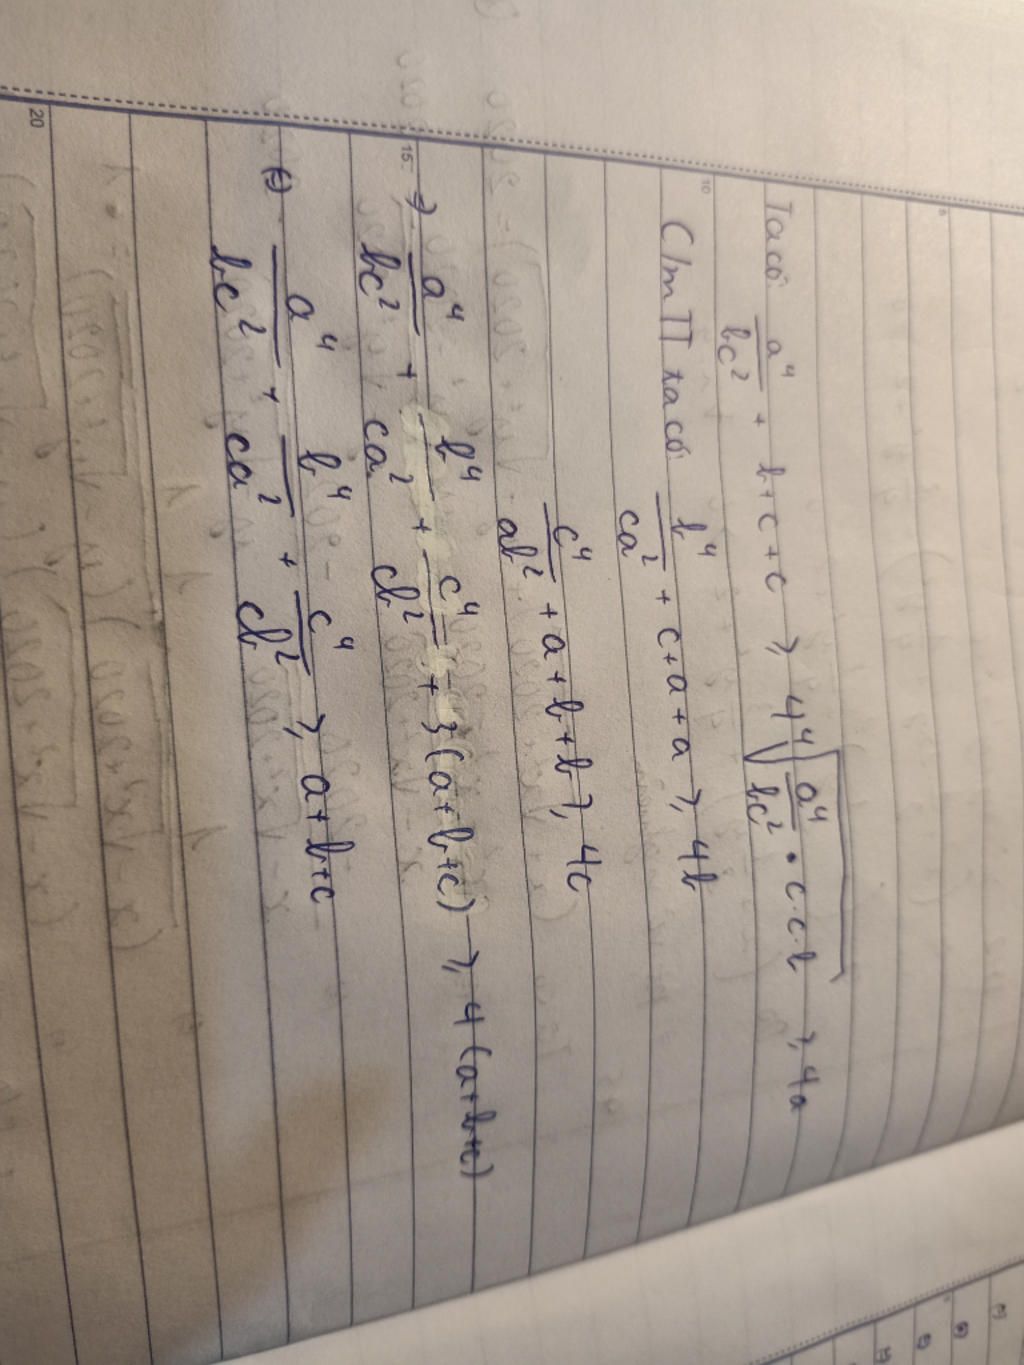 Ta có a⁴/bc² + b+c+c ≥ 4 ⁴√(a⁴/bc² · c.c.b) ≥ 4a
C/m TT ta có b⁴/ca² + c+a+a ≥ 4b
c⁴/ab² + a+b+b ≥ 4c
⇒ a⁴/bc² + b⁴/ca² + c⁴/cb² + 3(a+b+c) ≥ 4(a+b+c)
(-) a⁴/bc² + b⁴/ca² + c⁴/cb² ≥ a+b+c
5
10
15
20